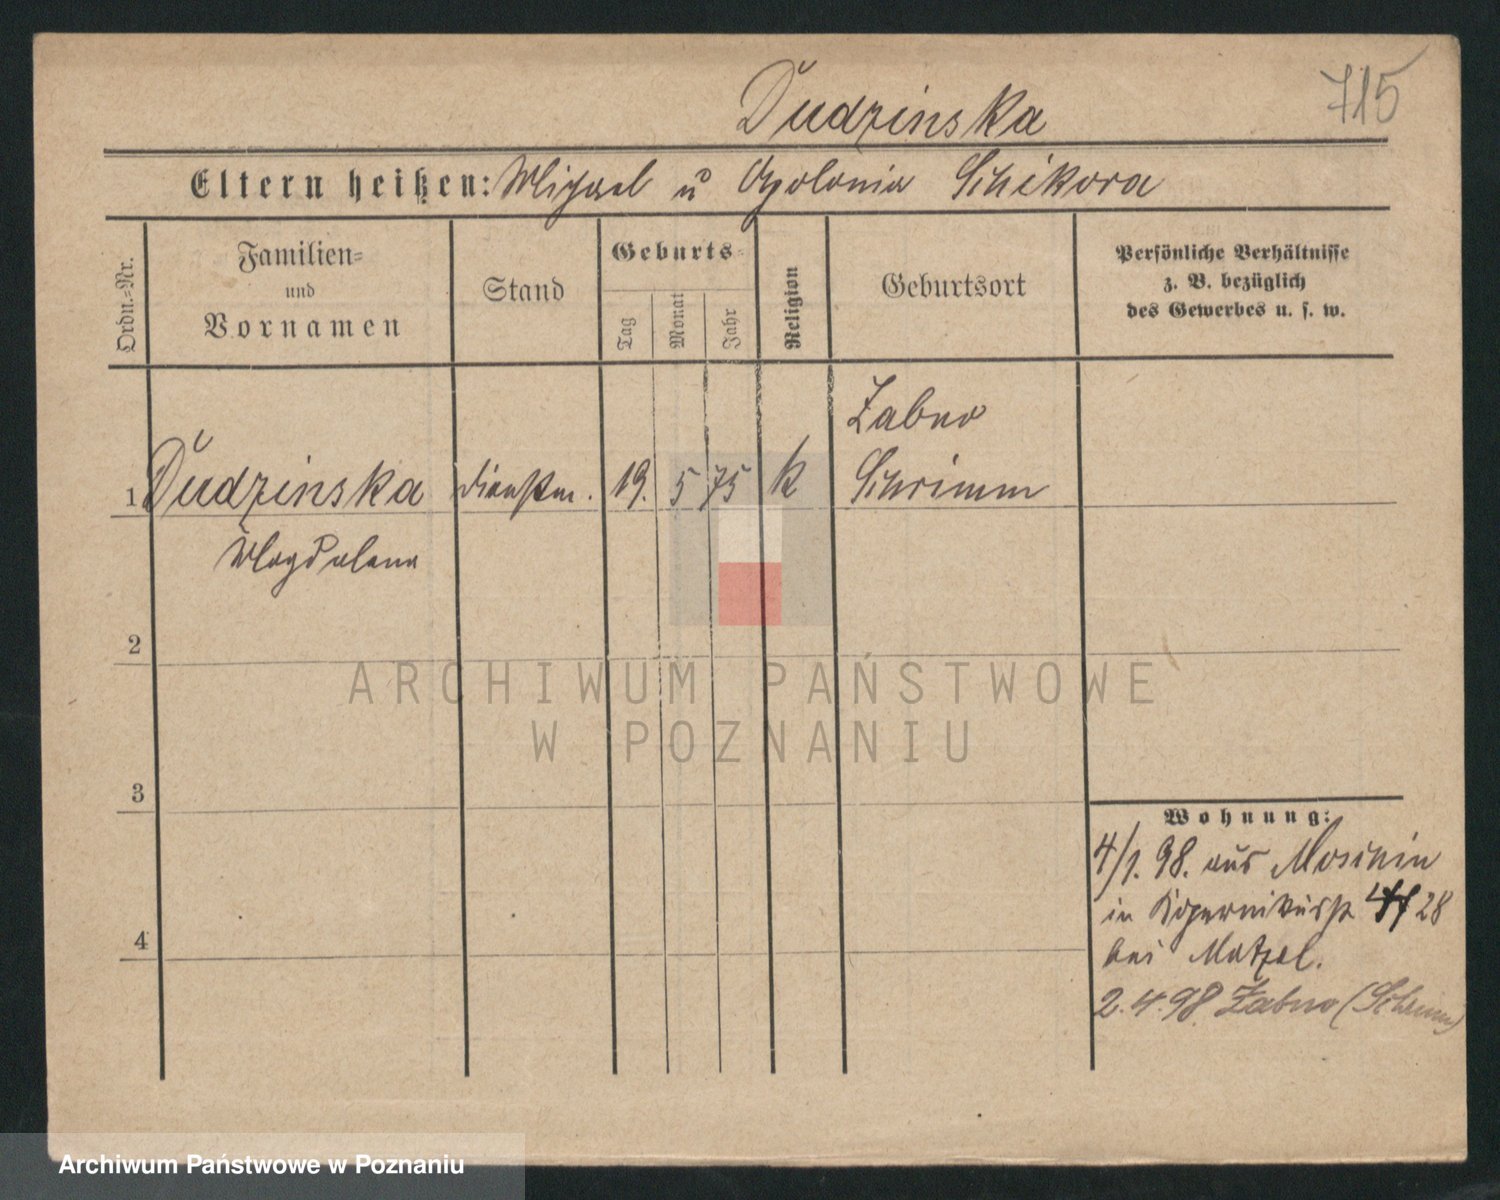 715
Dudzinska
Eltern heißen: Michael u Apolonia Schikora
Ordn.=Nr.
Familien=
und
Vornamen
Stand
Geburts=
Tag
Monat
Jahr
Religion
Geburtsort
Persönliche Verhältnisse
z. B. bezüglich
des Gewerbes u. s. w.
Zabno
1 Dudzinska Dienstm. 19. 5 75 k Schrimm
Magdalena
2
3
4
Wohnung:
4/1. 98. aus Moschin
in Kopernikusst 28
bei Matzel.
2.4.98. Zabno (Schrimm)
ARCHIWUM PAŃSTWOWE
W POZNANIU
Archiwum Państwowe w Poznaniu